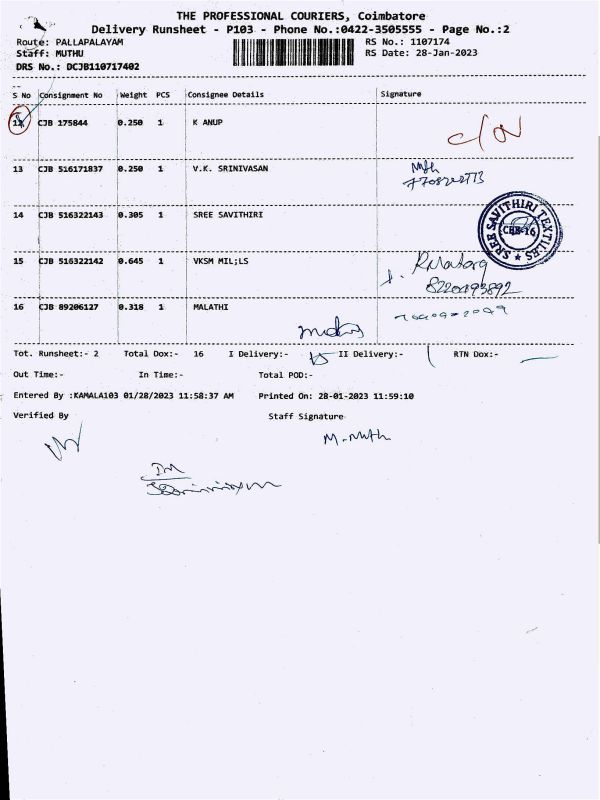 THE PROFESSIONAL COURIERS, Coimbatore
Delivery Runsheet - P103 - Phone No.:0422-3505555 - Page No.:2
Route: PALLAPALAYAM RS No.: 1107174
Staff: MUTHU RS Date: 28-Jan-2023
DRS No.: DCJB110717402
S No Consignment No Weight PCS Consignee Details Signature
12 CJB 175844 0.250 1 K ANUP
13 CJB 516171837 0.250 1 V.K. SRINIVASAN
14 CJB 516322143 0.305 1 SREE SAVITHIRI
SREE SAVITHIRI TEXTILES
CBE-16
15 CJB 516322142 0.645 1 VKSM MIL;LS
8220493892
16 CJB 89206127 0.318 1 MALATHI
Tot. Runsheet:- 2 Total Dox:- 16 I Delivery:- 15 II Delivery:- RTN Dox:-
Out Time:- In Time:- Total POD:-
Entered By :KAMALA103 01/28/2023 11:58:37 AM Printed On: 28-01-2023 11:59:10
Verified By Staff Signature
M. Muth